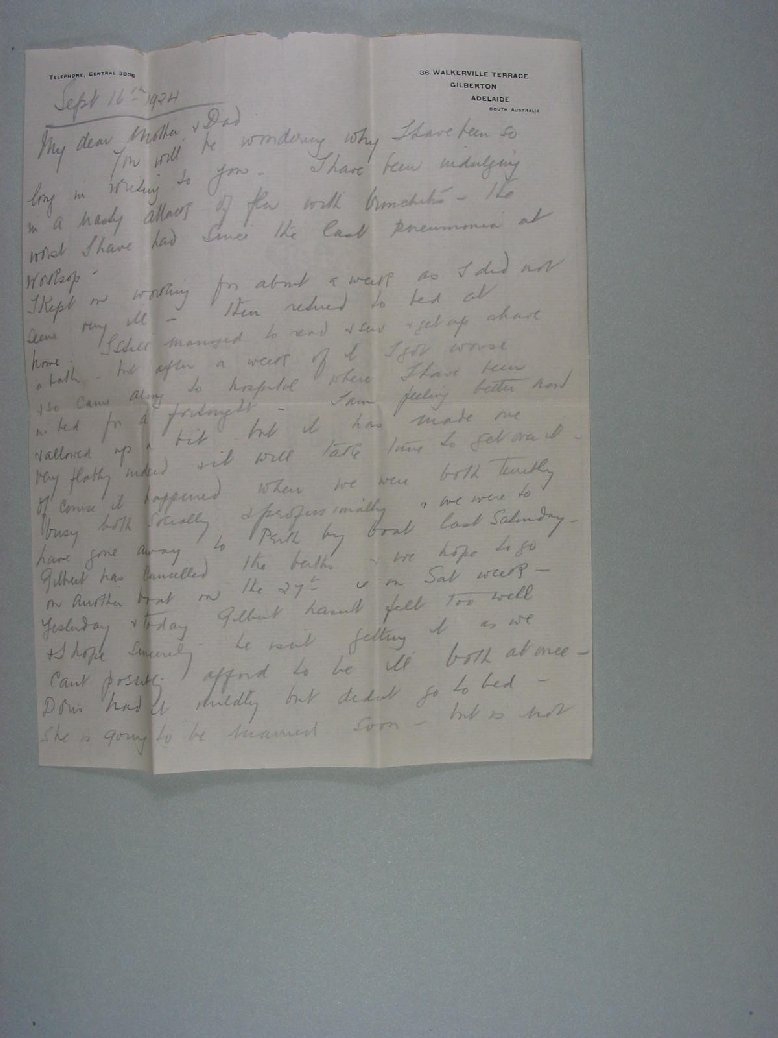 TELEPHONE, CENTRAL
36 WALKERVILLE TERRACE
GILBERTON
ADELAIDE
SOUTH AUSTRALIA
Sept 16th 1924
My dear Mother & Dad
You will be wondering why I have been so
long in writing to you. I have been indulging
in a nasty attack of flu with bronchitis – the
worst I have had since the last pneumonia at
Worksop.
I kept on working for about a week as I did not
seem very ill – then retired to bed at
home. I still managed to read & sew & get up & have
a bath – but after a week of it I got worse
& so came along to hospital where I have been
in bed for a fortnight – I am feeling better now
& allowed up a bit but it has made me
very flabby indeed & it will take time to get over it –
Of course it happened when we were both terribly
busy both socially & professionally & we were to
have gone away to Perth by boat last Saturday –
Gilbert has cancelled the berths & we hope to go
on another boat on the 27th ie on Sat week –
Yesterday & today Gilbert hasnt felt too well
& I hope sincerely he isnt getting it as we
cant possibly afford to be ill both at once –
Doris had it mildly but didnt go to bed –
She is going to be married soon – but is not